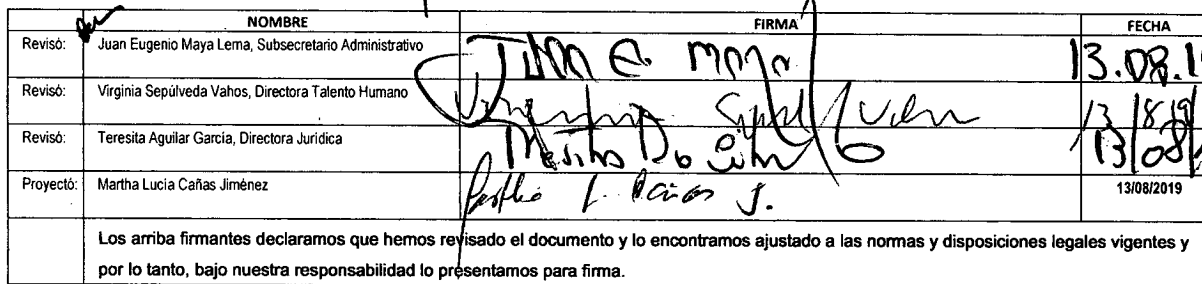 NOMBRE FIRMA FECHA
Revisó: Juan Eugenio Maya Lema, Subsecretario Administrativo Juan E Maya 13.08.1
Revisó: Virginia Sepúlveda Vahos, Directora Talento Humano 13/8/19
Revisó: Teresita Aguilar García, Directora Jurídica 13/08/
Proyectó: Martha Lucía Cañas Jiménez Martha L. Cañas J. 13/08/2019
Los arriba firmantes declaramos que hemos revisado el documento y lo encontramos ajustado a las normas y disposiciones legales vigentes y
por lo tanto, bajo nuestra responsabilidad lo presentamos para firma.